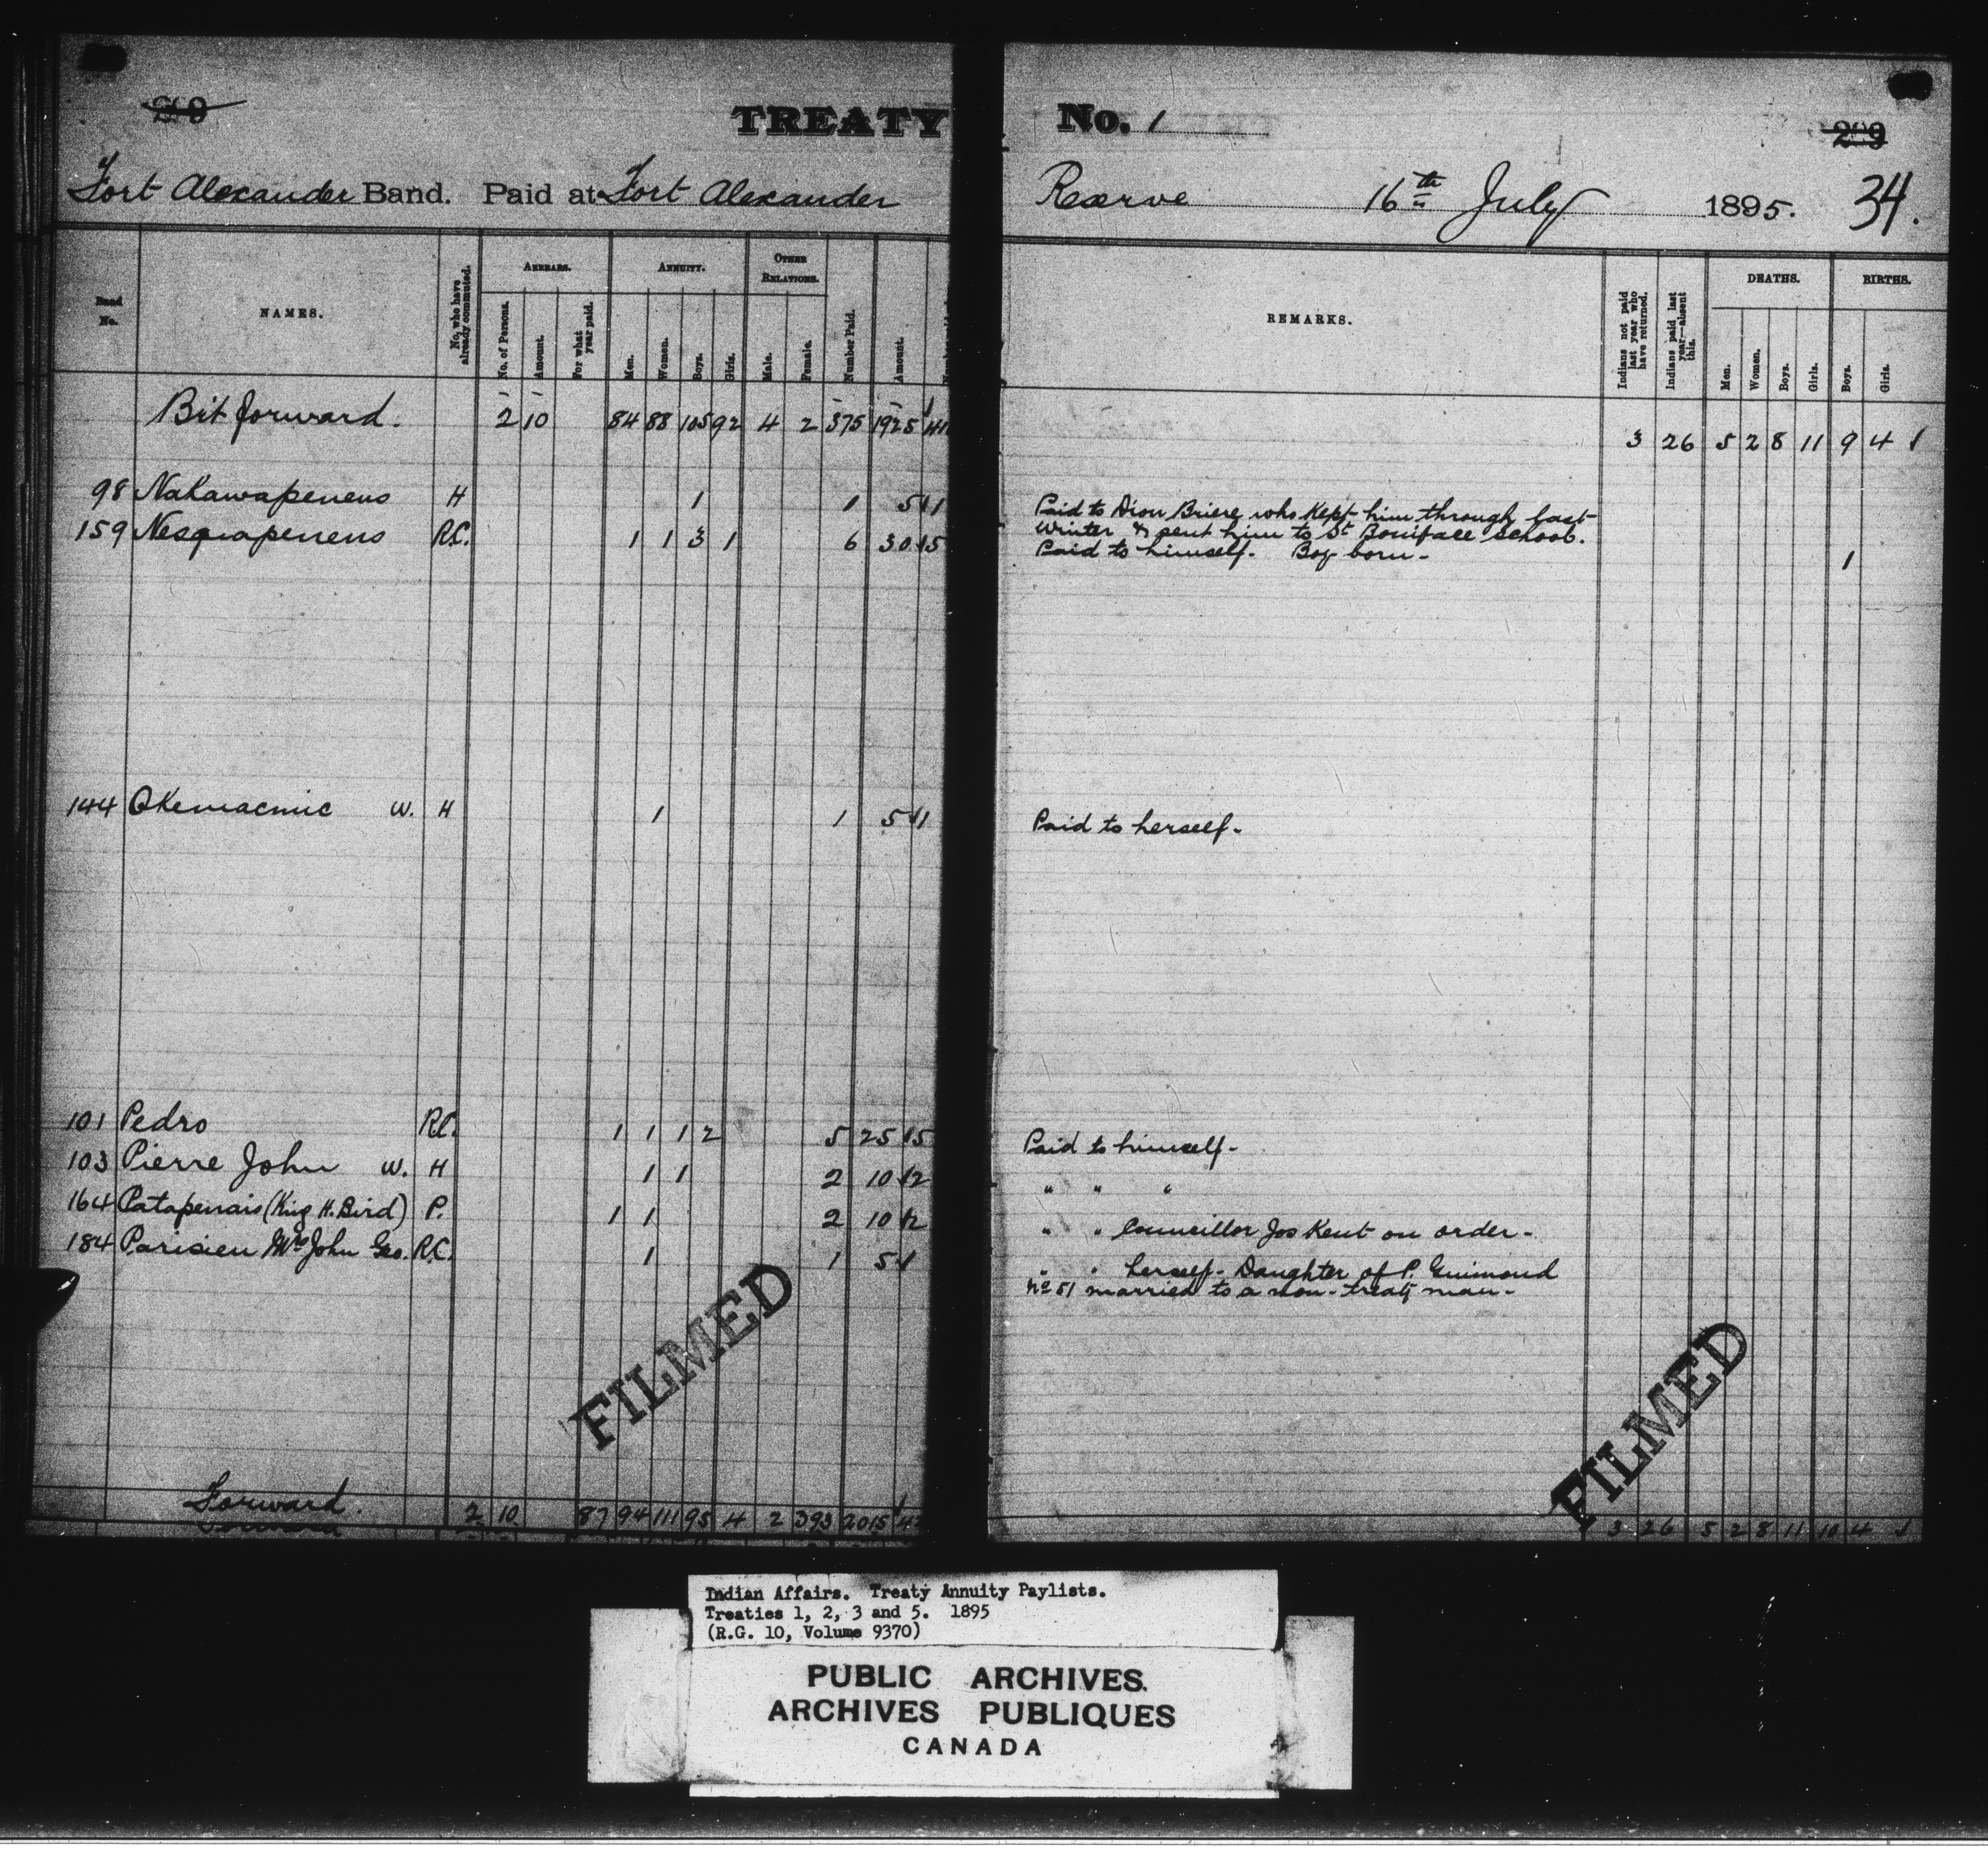 TREATY No. 1
Fort Alexander Band. Paid at Fort Alexander Reserve 16th July 1895. 34.
Band No.
NAMES.
No. who have already commuted.
ARREARS.
No. of Persons.
Amount.
For what year paid.
ANNUITY.
Men.
Women.
Boys.
Girls.
OTHER RELATIONS.
Male.
Female.
Number Paid.
Amount.
REMARKS.
Indians not paid last year who have returned.
Indians paid last year—absent this.
DEATHS.
Men.
Women.
Boys.
Girls.
BIRTHS.
Boys.
Girls.
Bit forward. 2 10 84 88 105 92 4 2 375 1925 3 26 5 2 8 11 9 4
98 Nakawapenens H 1 1 5 1 Paid to Dion Briere who kept him through last
Winter & sent him to St Boniface school.
159 Nesqiapenens R.C. 1 1 3 1 6 30 5 Paid to himself. Boy born - 1
144 Okemacmic W. H 1 1 5 1 Paid to herself -
101 Pedro R.C. 1 1 1 2 5 25 5 Paid to himself -
103 Pierre John W. H 1 1 2 10 2 " " "
164 Patapenais (King H. Bird) P. 1 1 2 10 2 " " Councillor Jos Kent on order -
184 Parisien Mrs John Geo. R.C. 1 1 5 " " herself - Daughter of P. Guimond
No 51 married to a non-treaty man -
FILMED
FILMED
Forward. 2 10 87 94 111 95 4 2 393 2015 3 26 5 2 8 11 10 4
Indian Affairs. Treaty Annuity Paylists.
Treaties 1, 2, 3 and 5. 1895
(R.G. 10, Volume 9370)
PUBLIC ARCHIVES.
ARCHIVES PUBLIQUES
CANADA